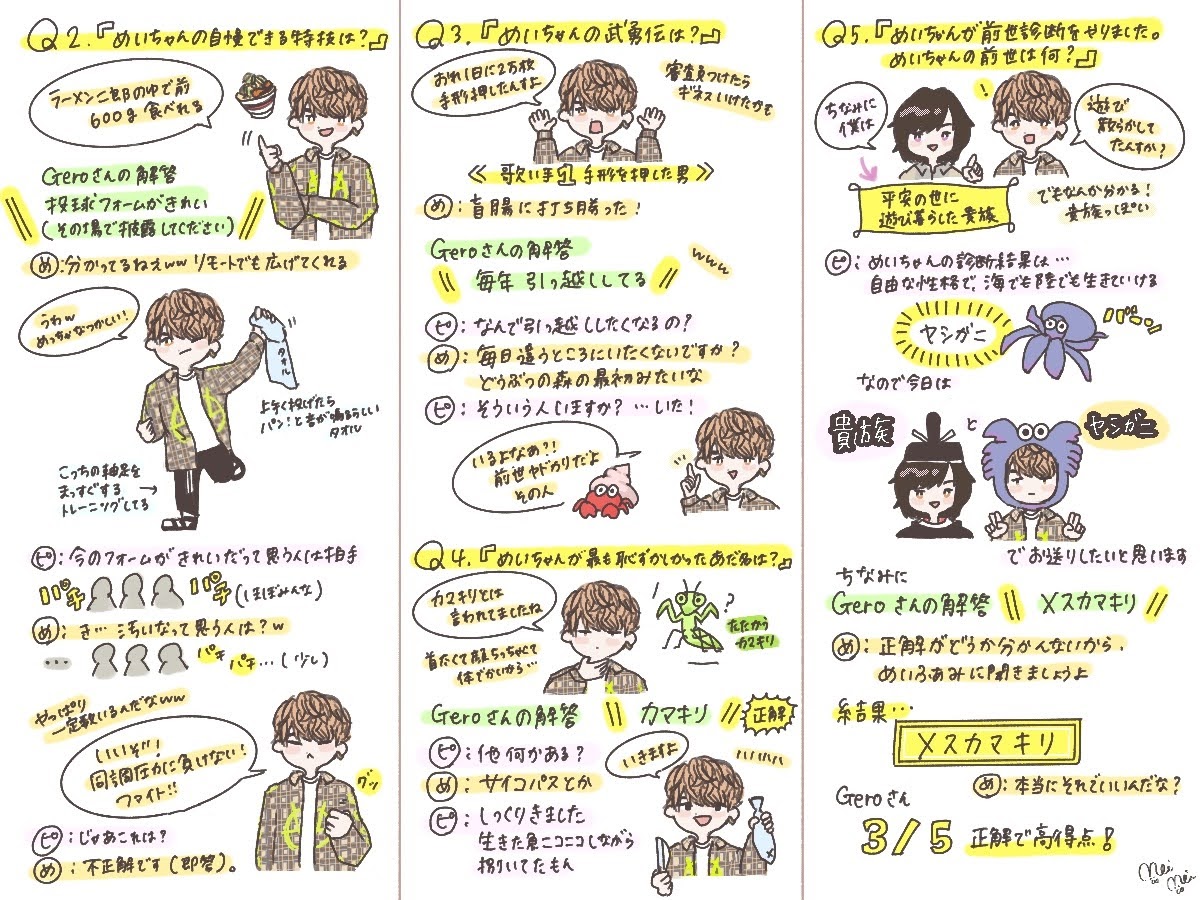 Q2.『めいちゃんの自慢できる特技は?』
ラーメン二郎の中で前
600g 食べれる
Geroさんの解答
投球フォームがきれい
(その場で披露してください)
め:分かってるねえww リモートでも広げてくれる
うわw
めっちゃなつかしい!
タオル
上手く投げたら
パン!と音が鳴るらしい
タオル
こっちの軸足を
まっすぐする
トレーニングしてる
ピ:今のフォームがきれいだって思う人は拍手
パチ パチ (ほぼみんな)
め:き… 汚いなって思う人は?w
… パチ パチ…(少し)
やっぱり
一定数いるんだなww
いいぞ!
同調圧力に負けない!
ファイト!!
グッ
ピ:じゃあこれは?
め:不正解です(即答)。
Q3.『めいちゃんの武勇伝は?』
おれ1日に2万枚
手形押したんすよ
審査員つけたら
ギネスいけたかも
≪歌い手1手形を押した男≫
め:盲腸に打ち勝った!
Geroさんの解答
毎年引っ越ししてる
www
ピ:なんで引っ越ししたくなるの?
め:毎日違うところにいたくないですか?
どうぶつの森の最初みたいな
ピ:そういう人いますか? …いた!
いるよなあ?!
前世ヤドカリだよ
その人
Q4.『めいちゃんが最も恥ずかしかったあだ名は?』
カマキリとは
言われてましたね
首たくて顔ちっちゃくて
体でかいから…
?
たたかう
カマキリ
Geroさんの解答 カマキリ 正解
ピ:他何かある?
め:サイコパスとか
ピ:しっくりきました
生きた魚ニコニコしながら
捌いてたもん
いきますよ
Q5.『めいちゃんが前世診断をやりました。
めいちゃんの前世は何?』
ちなみに
僕は
!
遊び
散らかして
たんすか?
平安の世に
遊び暮らした貴族
でもなんか分かる!
貴族っぽい
ピ:めいちゃんの診断結果は…
自由な性格で、海でも陸でも生きていける
ヤシガニ
バーン
なので今日は
貴族 と ヤシガニ
でお送りしたいと思います
ちなみに
Geroさんの解答 メスカマキリ
め:正解かどうか分かんないから、
めいふぁみに聞きましょうよ
結果…
メスカマキリ
め:本当にそれでいいんだな?
Geroさん
3/5 正解で高得点!
mei
mei